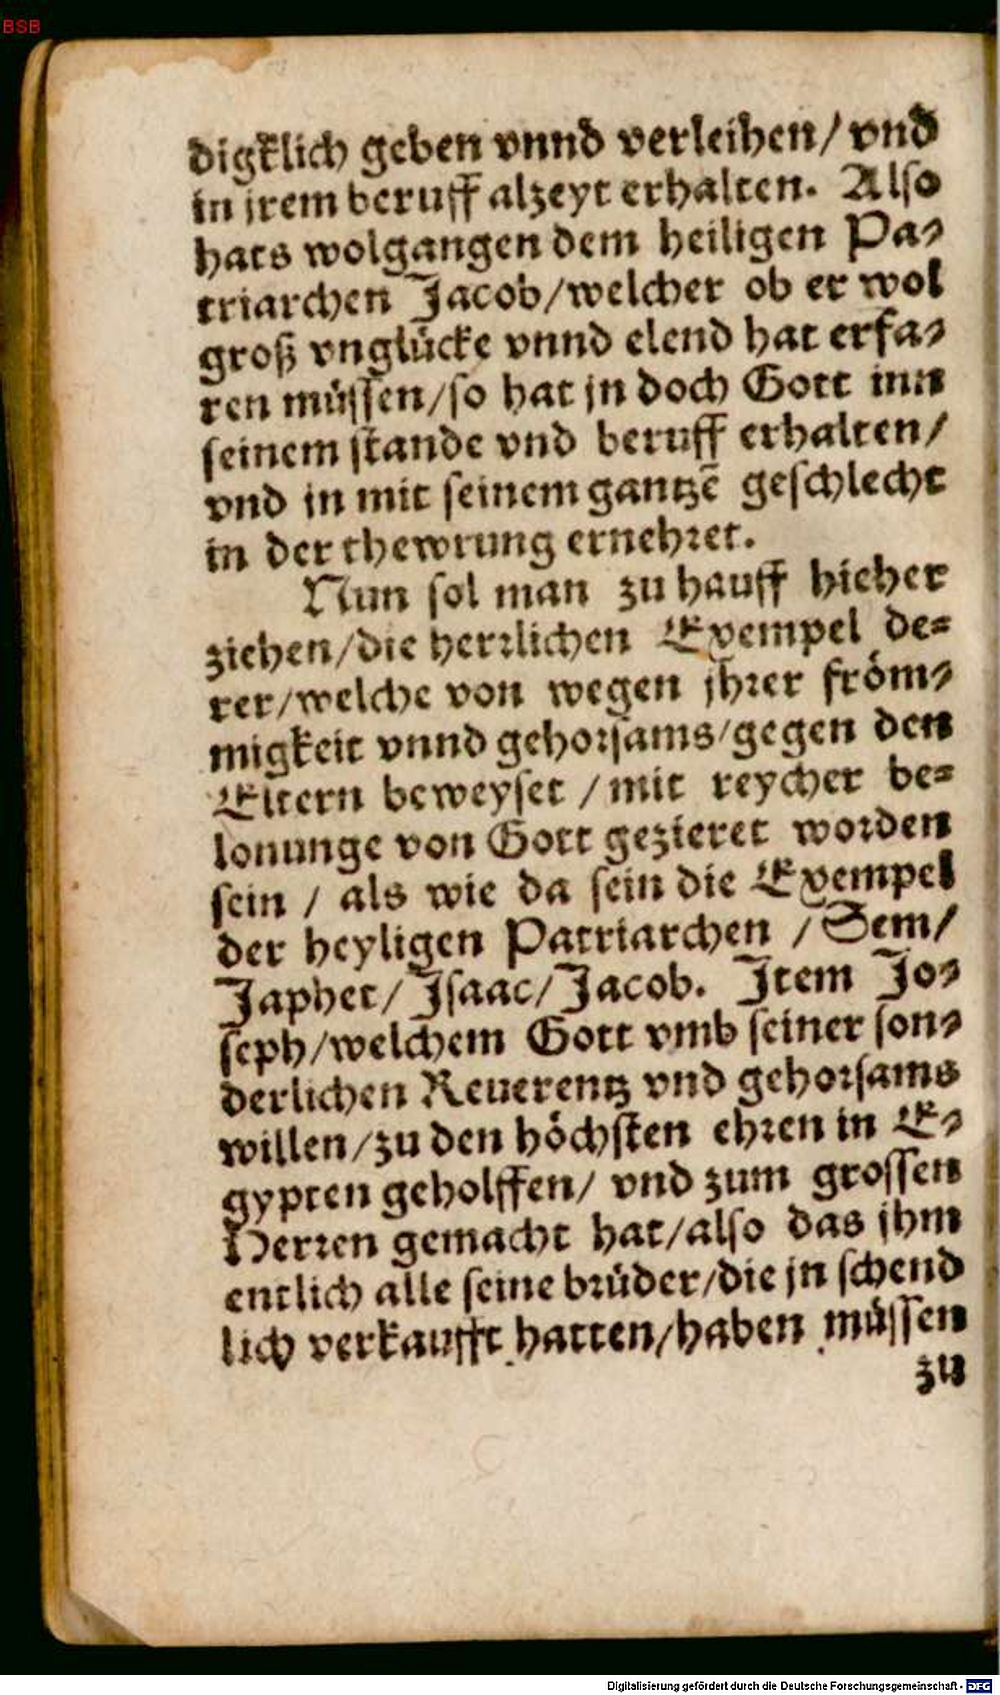 BSB
digklich geben vnnd verleihen/ vnd
in jrem beruff alzeyt erhalten. Also
hats wolgangen dem heiligen Pa-
triarchen Jacob/welcher ob er wol
groß vnglücke vnnd elend hat erfa-
ren müssen/so hat jn doch Gott inn
seinem stande vnd beruff erhalten/
vnd jn mit seinem gantzē geschlecht
in der thewrung ernehret.
Nun sol man zu hauff hieher
ziehen/die herrlichen Exempel de-
rer/welche von wegen jhrer fröm-
migkeit vnnd gehorsams/gegen den
Eltern beweyset / mit reycher be-
lonunge von Gott gezieret worden
sein / als wie da sein die Exempel
der heyligen Patriarchen / Sem/
Japhet/ Isaac/ Jacob. Item Jo-
seph/welchem Gott vmb seiner son-
derlichen Reuerentz vnd gehorsams
willen/zu den höchsten ehren in E-
gypten geholffen/ vnd zum grossen
Herren gemacht hat/also das jhm
entlich alle seine brüder/die jn schend
lich verkaufft hatten/haben müssen
zu
Digitalisierung gefördert durch die Deutsche Forschungsgemeinschaft - DFG